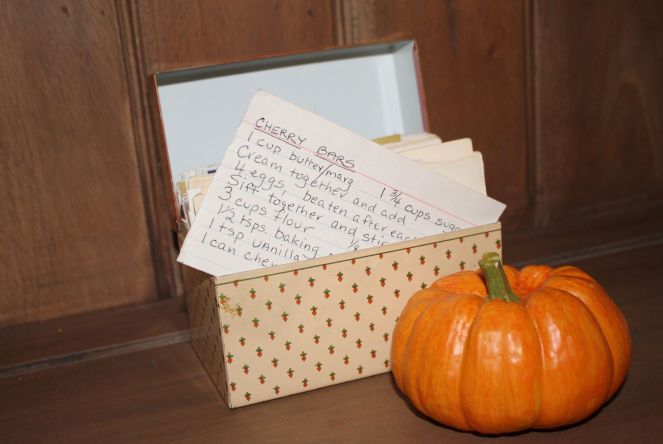 CHERRY BARS
1 cup butter/marg 1 3/4 cups suga
Cream together and add
4 eggs, beaten after ea
Sift together and stir
3 cups flour 1/8
1 1/2 tsps. baking
1 tsp vanilla
1 can che